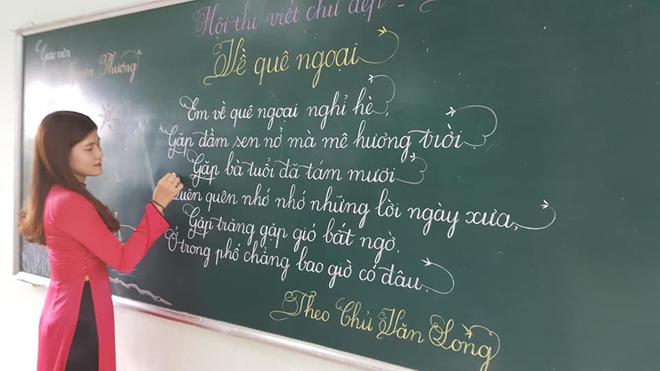 Hội thi viết chữ đẹp -
Giáo viên
Thương
Về quê ngoại
Em về quê ngoại nghỉ hè,
Gặp đầm sen nở mà mê hương trời
Gặp bà tuổi đã tám mươi
Quên quên nhớ nhớ những lời ngày xưa,
Gặp trăng gặp gió bất ngờ,
Ở trong phố chẳng bao giờ có đâu.
Theo Chử Văn Long